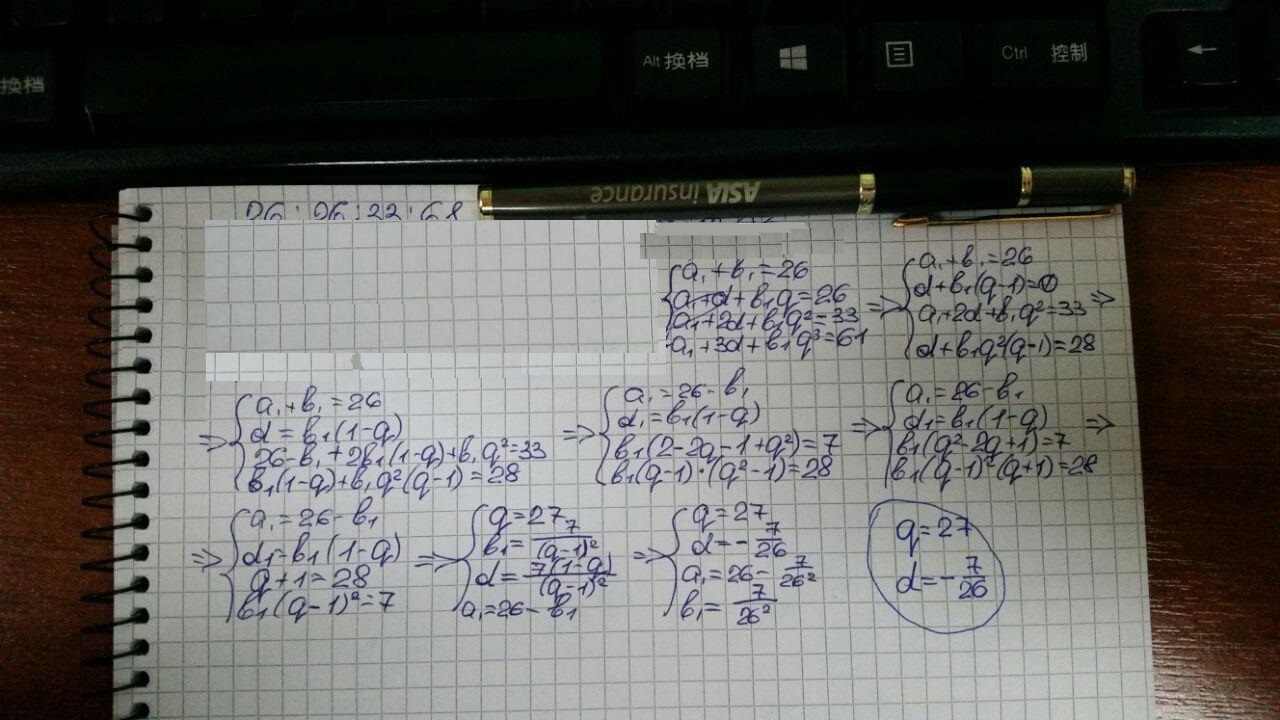 Alt 换档
Ctrl 控制
换档
ASIA insurance
a₁+b₁=26
a₁+d+b₁q=26
a₁+2d+b₁q²=33
a₁+3d+b₁q³=61
=>
a₁+b₁=26
d+b₁(q-1)=0
a₁+2d+b₁q²=33
d+b₁q²(q-1)=28
=>
=>
a₁+b₁=26
d=b₁(1-q)
26-b₁+2b₁(1-q)+b₁q²=33
b₁(1-q)+b₁q²(q-1)=28
=>
a₁=26-b₁
d₁=b₁(1-q)
b₁(2-2q-1+q²)=7
b₁(q-1)·(q²-1)=28
=>
a₁=26-b₁
d₁=b₁(1-q)
b₁(q²-2q+1)=7
b₁(q-1)²(q+1)=28
=>
=>
a₁=26-b₁
d₁=b₁(1-q)
q+1=28
b₁(q-1)²=7
=>
q=27
b₁=7/(q-1)²
d=7(1-q)/(q-1)²
a₁=26-b₁
=>
q=27
d=-7/26
a₁=26-7/26²
b₁=7/26²
q=27
d=-7/26